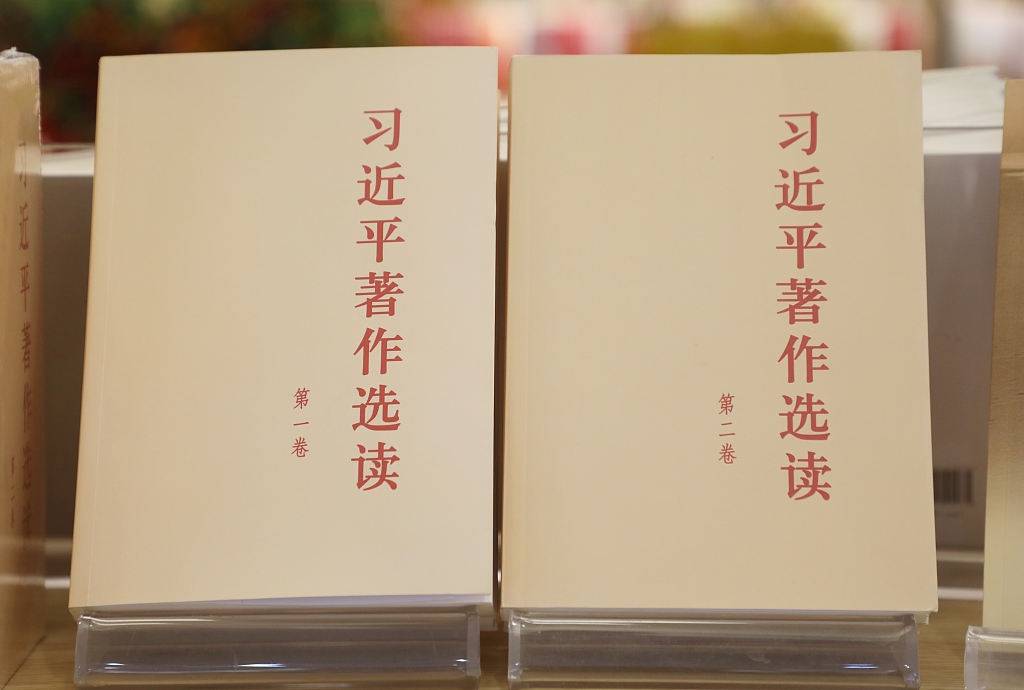 习近平著作选读
第一卷
习近平著作选读
第二卷
习近平著作选读